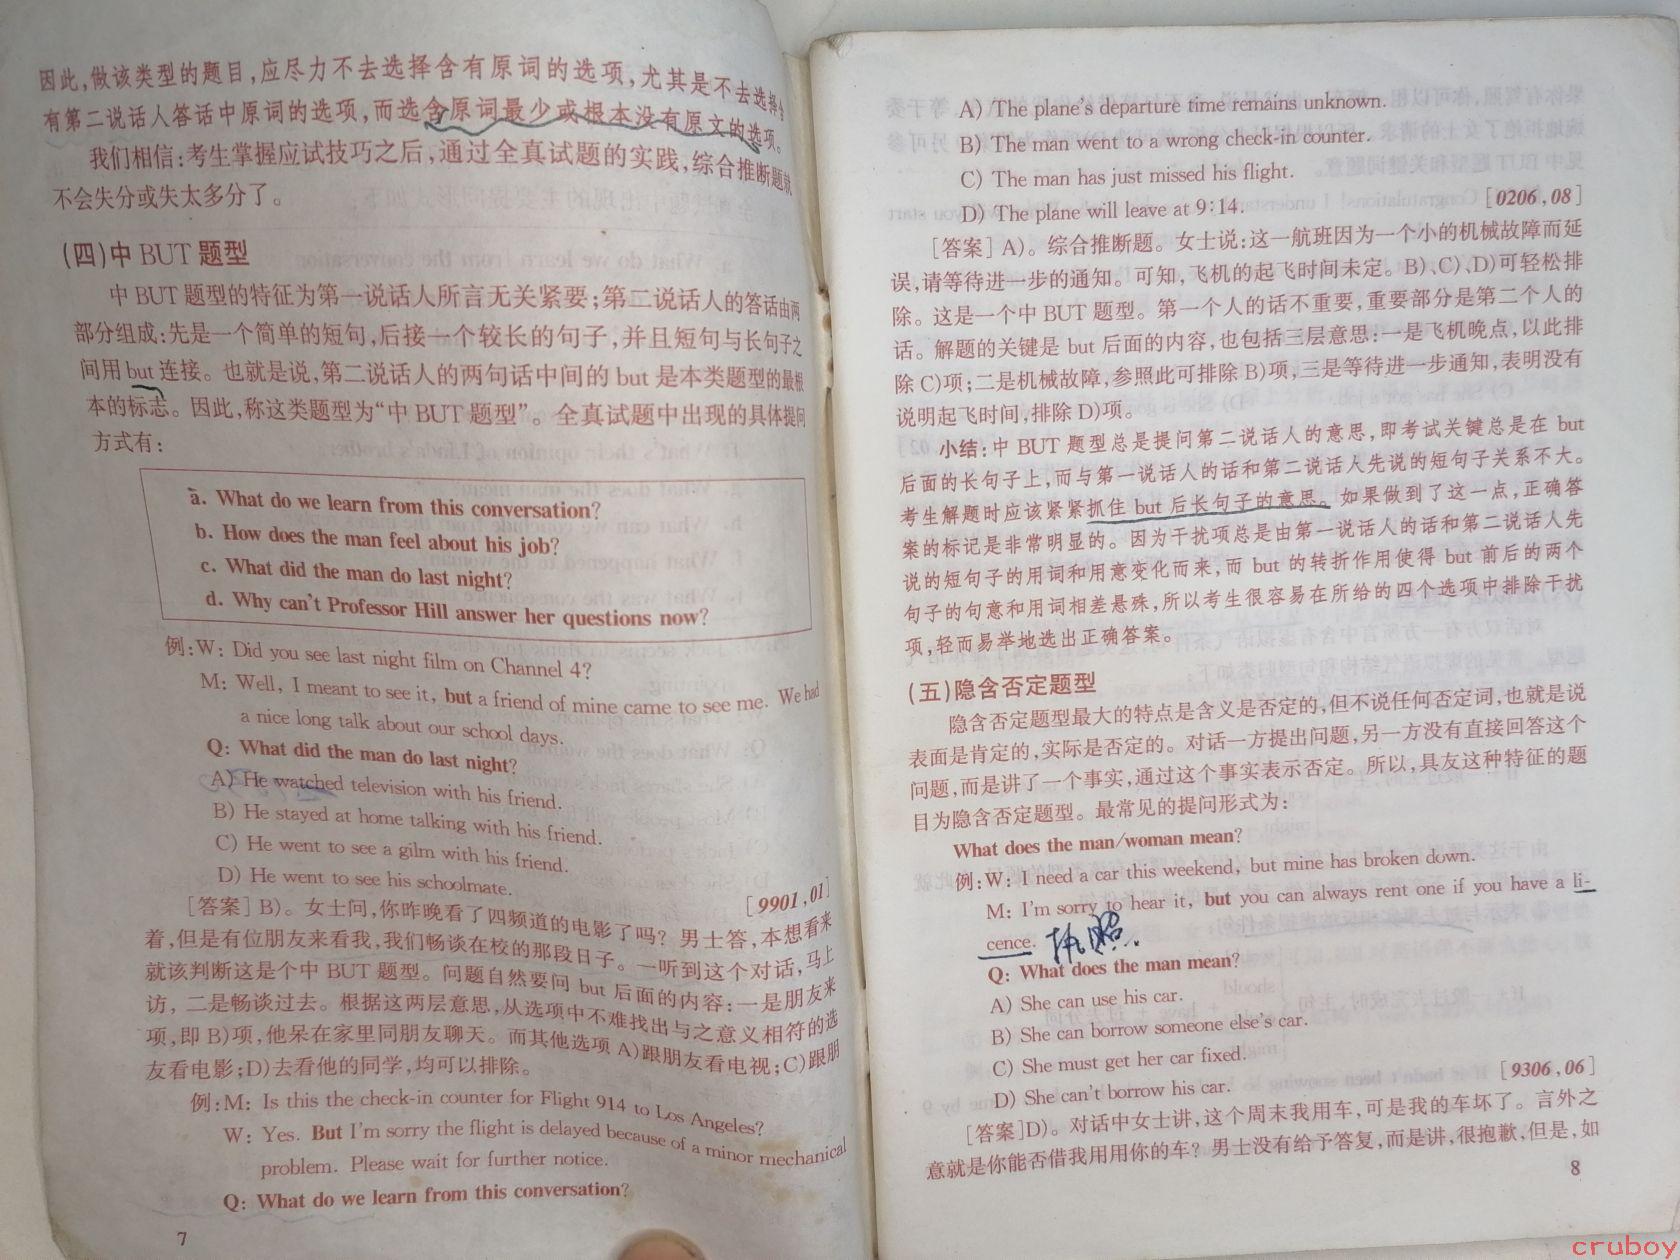 因此,做该类型的题目,应尽力不去选择含有原词的选项,尤其是不去选择含
有第二说话人答话中原词的选项,而选含原词最少或根本没有原文的选项。
我们相信:考生掌握应试技巧之后,通过全真试题的实践,综合推断题就
不会失分或失太多分了。
(四)中 BUT 题型
中 BUT 题型的特征为第一说话人所言无关紧要;第二说话人的答话由两
部分组成:先是一个简单的短句,后接一个较长的句子,并且短句与长句子之
间用 but 连接。也就是说,第二说话人的两句话中间的 but 是本类题型的最根
本的标志。因此,称这类题型为“中 BUT 题型”。全真试题中出现的具体提问
方式有:
a. What do we learn from this conversation?
b. How does the man feel about his job?
c. What did the man do last night?
d. Why can't Professor Hill answer her questions now?
例:W: Did you see last night film on Channel 4?
M: Well, I meant to see it, but a friend of mine came to see me. We had
a nice long talk about our school days.
Q: What did the man do last night?
A) He watched television with his friend.
B) He stayed at home talking with his friend.
C) He went to see a gilm with his friend.
D) He went to see his schoolmate.
[9901,01]
[答案] B)。女士问,你昨晚看了四频道的电影了吗? 男士答,本想看来
着,但是有位朋友来看我,我们畅谈在校的那段日子。一听到这个对话,马上
就该判断这是个中 BUT 题型。问题自然要问 but 后面的内容:一是朋友来
访, 二是畅谈过去。根据这两层意思,从选项中不难找出与之意义相符的选
项,即 B)项,他呆在家里同朋友聊天。而其他选项 A)跟朋友看电视;C)跟朋
友看电影;D)去看他的同学,均可以排除。
例:M: Is this the check-in counter for Flight 914 to Los Angeles?
W: Yes. But I'm sorry the flight is delayed because of a minor mechanical
problem. Please wait for further notice.
Q: What do we learn from this conversation?
7
A) The plane's departure time remains unknown.
B) The man went to a wrong check-in counter.
C) The man has just missed his flight.
D) The plane will leave at 9:14.
[0206,08]
[答案] A)。综合推断题。女士说:这一航班因为一个小的机械故障而延
误,请等待进一步的通知。可知,飞机的起飞时间未定。B)、C)、D)可轻松排
除。这是一个中 BUT 题型。第一个人的话不重要,重要部分是第二个人的
话。解题的关键是 but 后面的内容,也包括三层意思:一是飞机晚点,以此排
除 C)项;二是机械故障,参照此可排除 B)项,三是等待进一步通知,表明没有
说明起飞时间,排除 D)项。
小结:中 BUT 题型总是提问第二说话人的意思,即考试关键总是在 but
后面的长句子上,而与第一说话人的话和第二说话人先说的短句子关系不大。
考生解题时应该紧紧抓住 but 后长句子的意思。如果做到了这一点,正确答
案的标记是非常明显的。因为干扰项总是由第一说话人的话和第二说话人先
说的短句子的用词和用意变化而来,而 but 的转折作用使得 but 前后的两个
句子的句意和用词相差悬殊,所以考生很容易在所给的四个选项中排除干扰
项,轻而易举地选出正确答案。
(五)隐含否定题型
隐含否定题型最大的特点是含义是否定的,但不说任何否定词,也就是说
表面是肯定的,实际是否定的。对话一方提出问题,另一方没有直接回答这个
问题,而是讲了一个事实,通过这个事实表示否定。所以,具友这种特征的题
目为隐含否定题型。最常见的提问形式为:
What does the man/woman mean?
例:W: I need a car this weekend, but mine has broken down.
M: I'm sorry to hear it, but you can always rent one if you have a li-
cence. 执照.
Q: What does the man mean?
A) She can use his car.
B) She can borrow someone else's car.
C) She must get her car fixed.
D) She can't borrow his car.
[9306,06]
[答案]D)。对话中女士讲,这个周末我用车,可是我的车坏了。言外之
意就是你能否借我用用你的车? 男士没有给予答复,而是讲,很抱歉,但是,如
8
cruboy